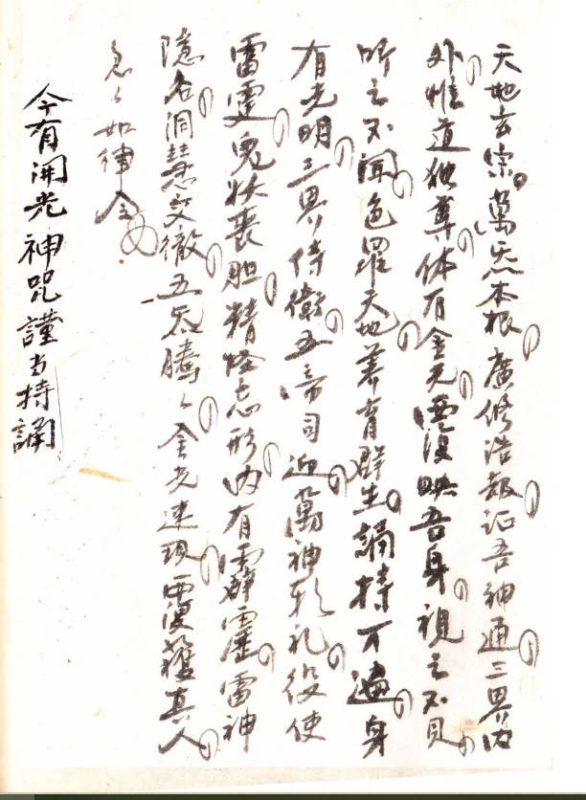 天地玄宗萬炁本根廣修浩劫証吾神通三界内
外惟道独尊体有金光覆映吾身視之不見
听之不聞包羅天地養育群生誦持万遍身
有光明三界侍衛五帝司迎萬神朝礼役使
雷霆鬼妖丧胆精怪忘形内有霹靂雷神
隱名洞慧交徹五炁騰々金光速現覆護真人
急々如律令
今有開光神咒謹当持誦